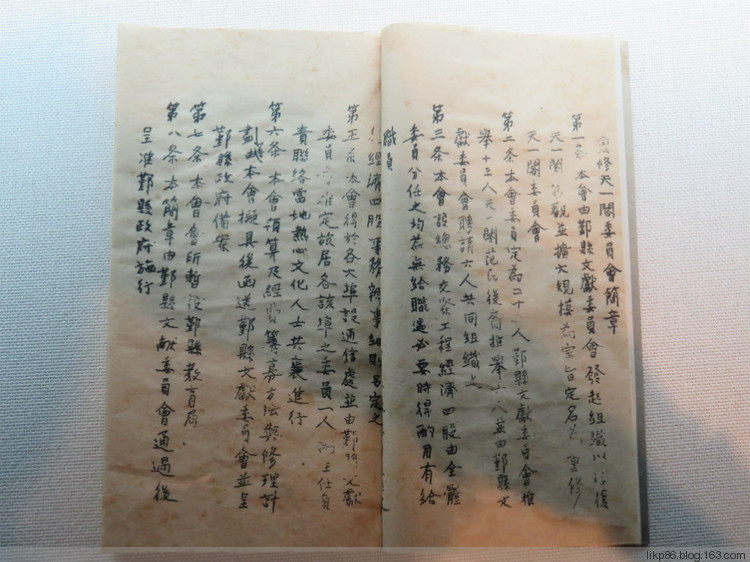 修天一閣委員會簡章
第一条本會由鄞縣文獻委員會發起組織以修復
天一閣舊觀並擴大規模為宗旨定名為重修
天一閣委員會
第二条本會委員定為二十人鄞縣文獻委員會推
舉十三人天一閣范氏後裔推舉人並由鄞縣文
獻委員會聘請六人共同組織之
第三条本會設總務交際工程經濟四股由全體
委員分任之均為無給職遇必要時得酌用有給
職員
經濟四股事務辦事細則另定之
第五条本會得於各大埠設通信處並由鄞縣文獻
委員會推定旅居各該埠之委員一人為主任負
責聯絡當地熱心文化人士共襄進行
第六条本會預算及經費籌募方法與修理計
劃本會擬具後函送鄞縣文獻委員會並呈
鄞縣政府備案
第七条本會會所暫設鄞縣教育局
第八条本簡章由鄞縣文献委員會通過後
呈准鄞縣政府施行
likp86.blog.163.com